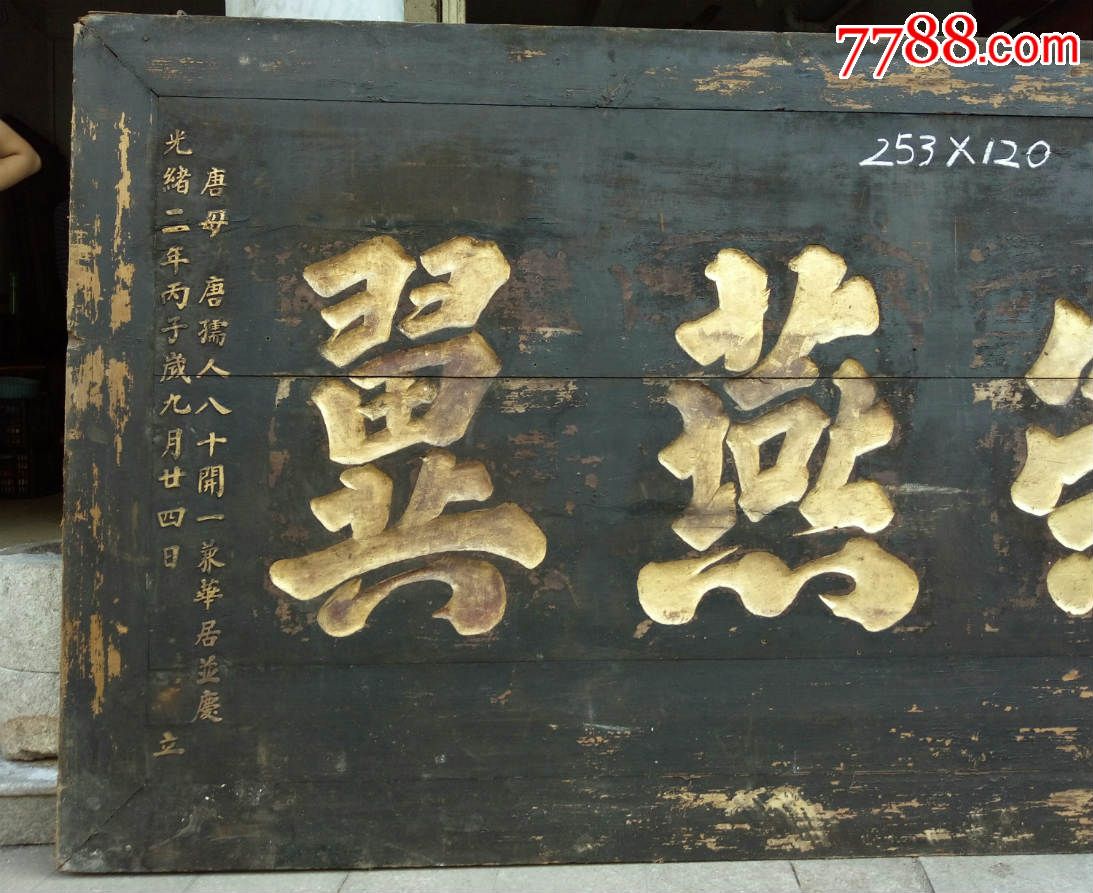 7788.com
253×120
燕翼
唐母 唐孺人八十開一 兼華居並慶
光緒二年丙子歲九月廿四日 立